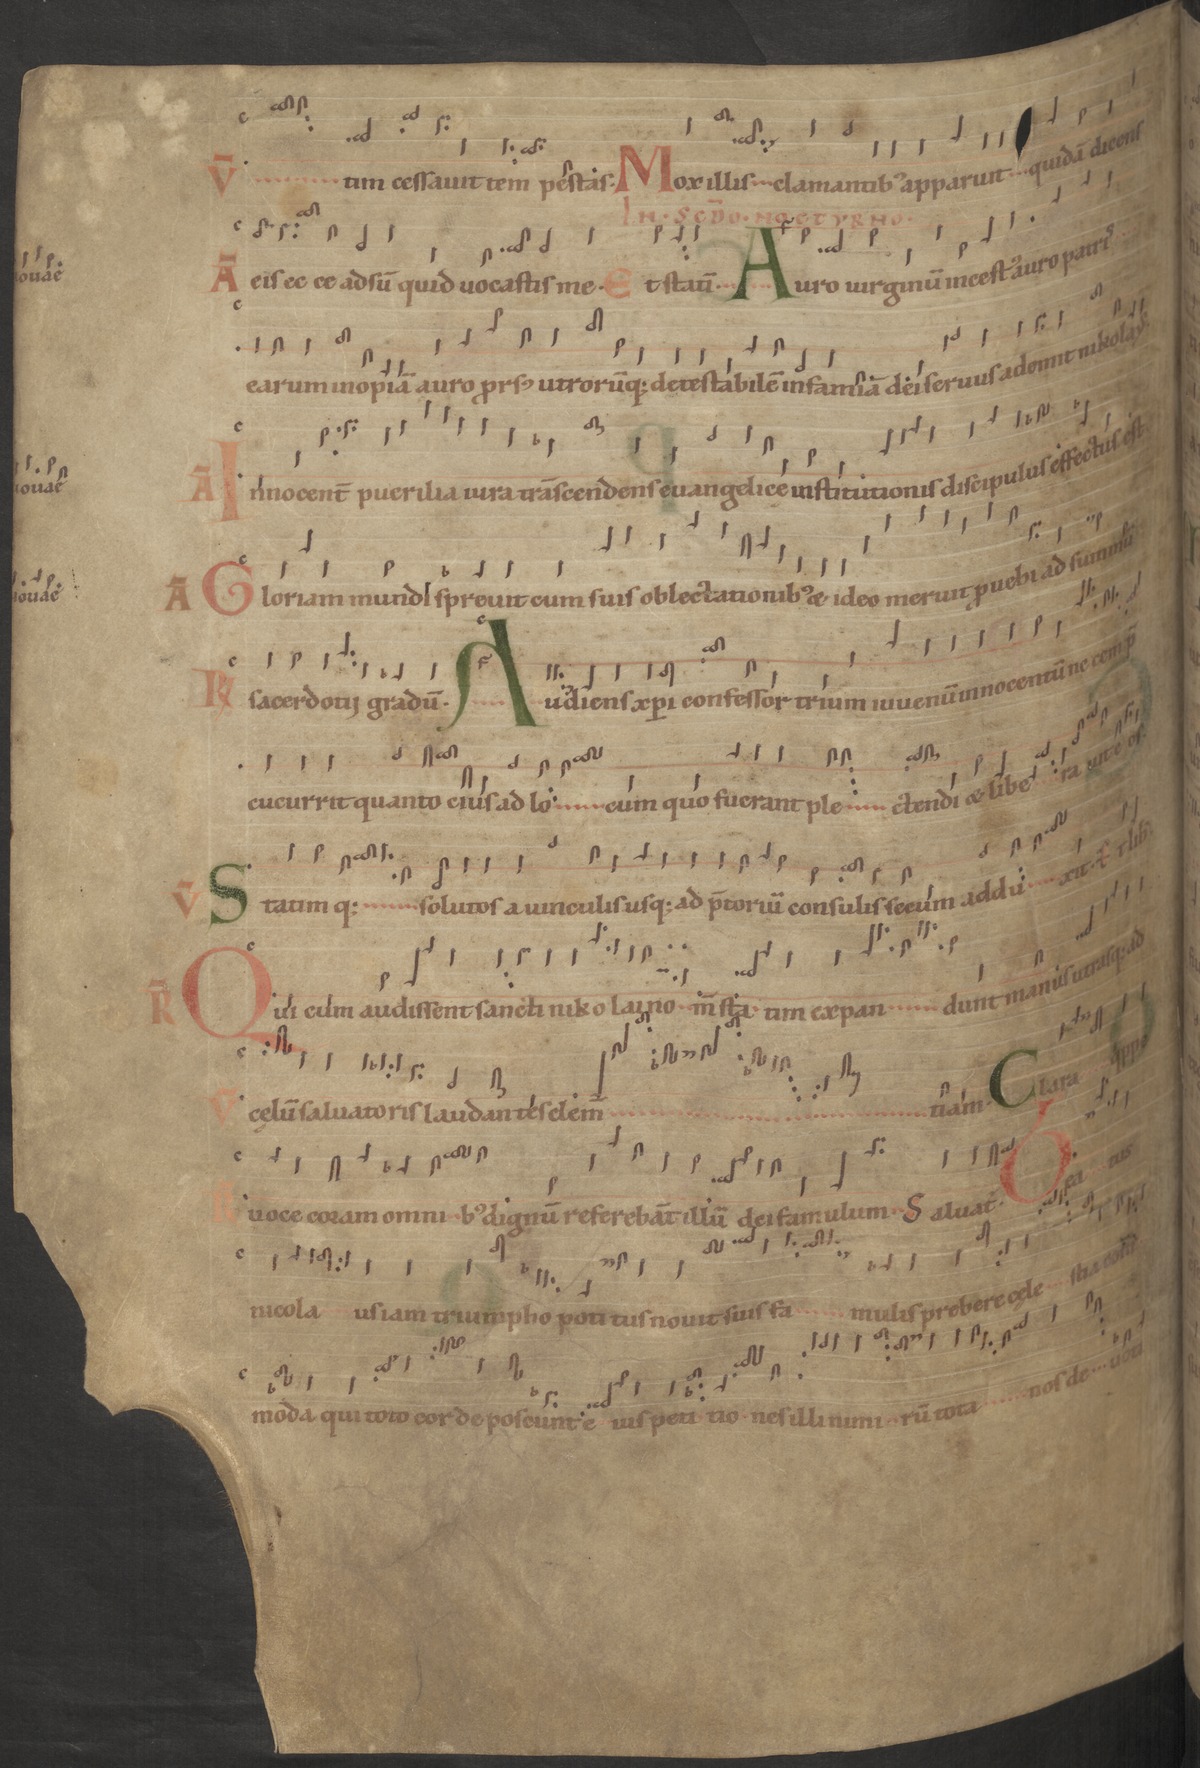 V̄ tim cessauit tem pestas. Mox illis clamantib' apparuit quidā dicens
IN. SCD̄O. NOCTVRNO.
Ā eis ec ce adsū quid uocastis me. Et statī Auro uirginū incest' auro patris
ouae
earum inopiā auro prs' utrorūq; detestabilē infamiā dei seruus ademit nikolaus
Ā Innocent̄ puerilia iura trāscendens euangelice institutionis discipulus effectus est
ouae
Ā Gloriam mundi spreuit cum suis oblectationib' & ideo meruit puehi ad summū
ouae
R̄ sacerdotij gradū. Audiens xpi confessor trium iuuenū innocentū necem p̄
cucurrit quanto cius ad lo cum quo fuerant ple ctendi & libe ra
V̄ Statim q; solutos a uinculis usq; ad p̄toriū consulis secum addu xit
R̄ Qui cum audissent sancti nikolai no m̄ sta tim expan dunt manus utrasq; ad
V̄ cęlū saluatoris laudantes clem̄ tiam Clara
uoce coram omni b' dignū referebāt illū dei famulum Saluat̄. Bea tus
nicola us iam triumpho poti tus nouit suis fa mulis prebere cęle stia
moda qui toto corde poscunt e ius peti tio nes illi nimi rū tota nos de uoti